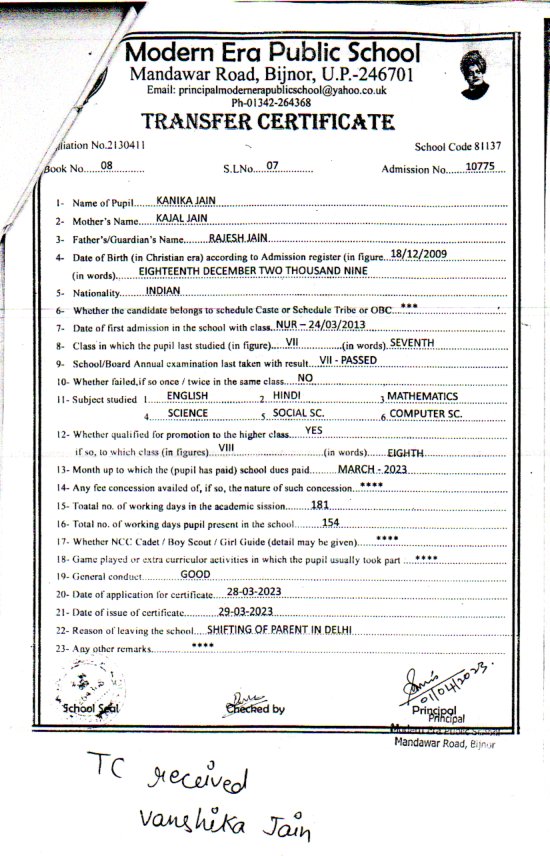 Modern Era Public School
Mandawar Road, Bijnor, U.P.-246701
Email: principalmodernerapublicschool@yahoo.co.uk
Ph-01342-264368
TRANSFER CERTIFICATE
iliation No.2130411 School Code 81137
Book No. 08 S.LNo. 07 Admission No. 10775
1- Name of Pupil KANIKA JAIN
2- Mother's Name KAJAL JAIN
3- Father's/Guardian's Name RAJESH JAIN
4- Date of Birth (in Christian era) according to Admission register (in figure 18/12/2009
(in words) EIGHTEENTH DECEMBER TWO THOUSAND NINE
5- Nationality INDIAN
6- Whether the candidate belongs to schedule Caste or Schedule Tribe or OBC ***
7- Date of first admission in the school with class NUR – 24/03/2013
8- Class in which the pupil last studied (in figure) VII (in words) SEVENTH
9- School/Board Annual examination last taken with result VII - PASSED
10- Whether failed,if so once / twice in the same class NO
11- Subject studied 1 ENGLISH 2 HINDI 3 MATHEMATICS
4 SCIENCE 5 SOCIAL SC. 6 COMPUTER SC.
12- Whether qualified for promotion to the higher class YES
if so, to which class (in figures) VIII (in words) EIGHTH
13- Month up to which the (pupil has paid) school dues paid MARCH - 2023
14- Any fee concession availed of, if so, the nature of such concession ****
15- Toatal no. of working days in the academic sission 181
16- Total no. of working days pupil present in the school 154
17- Whether NCC Cadet / Boy Scout / Girl Guide (detail may be given) ****
18- Game played or extra curriculor activities in which the pupil usually took part ****
19- General conduct GOOD
20- Date of application for certificate 28-03-2023
21- Date of issue of certificate 29-03-2023
22- Reason of leaving the school SHIFTING OF PARENT IN DELHI
23- Any other remarks ****
01/04/2023
School Seal Checked by Principal
Principal
Modern Era Public School
Mandawar Road, Bijnor
TC received
Vanshika Jain